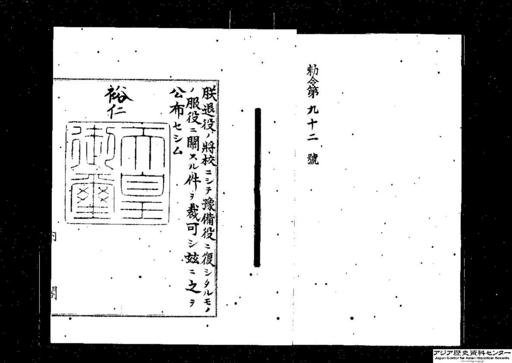 勅令第九十二號
朕退役ノ將校ニシテ豫備役ニ復シタルモノ
ノ服役ニ關スル件ヲ裁可シ玆ニ之ヲ
公布セシム
裕仁
天皇御璽
内閣
アジア歴史資料センター
Japan Center for Asian Historical Records